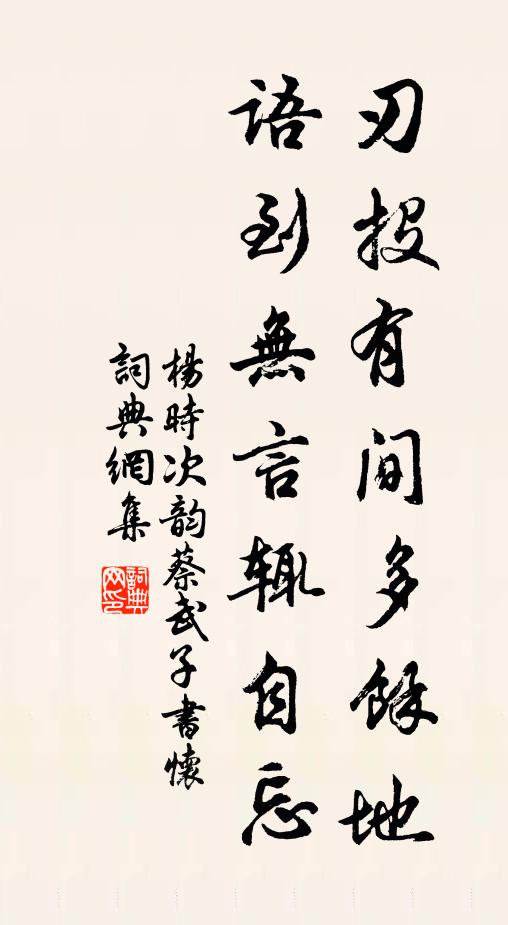 刃投有间多餘地
語到無言輒自忘
楊時次韵蔡武子書懷
詞典網集
詞典网印